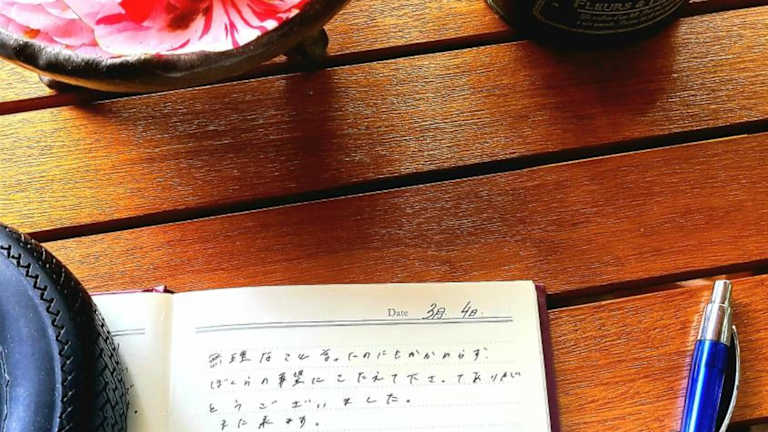 FLEURS &
Date 3月 4日.
無理なこと言ったのにもかかわらず
ぼくらの希望にこたえて下さってありが
とうございました。
又来ます。